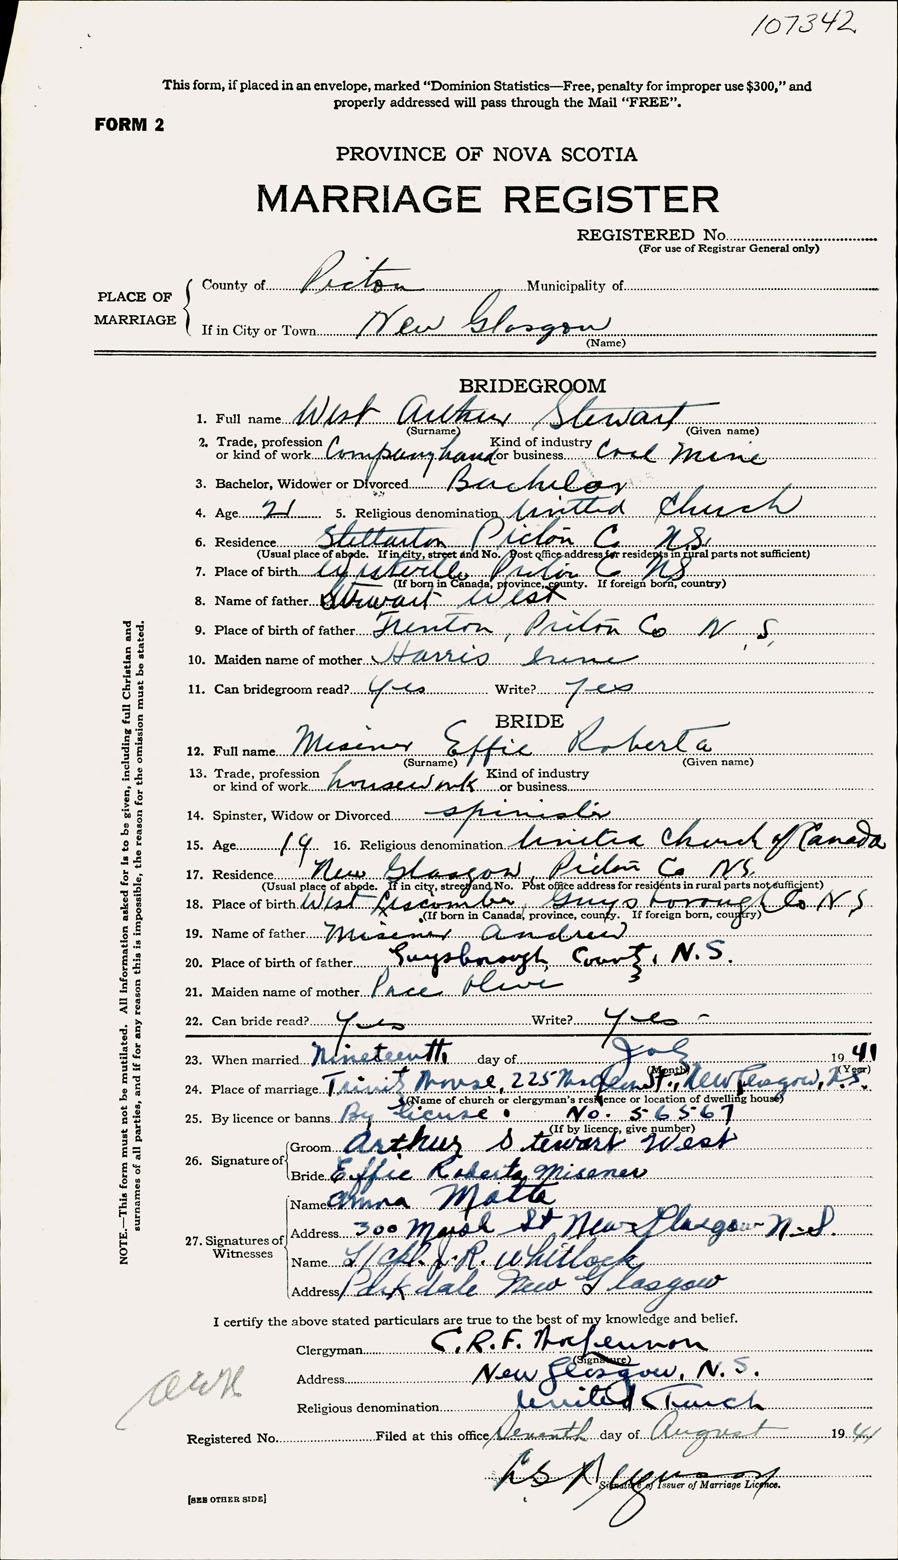 107342
This form, if placed in an envelope, marked “Dominion Statistics—Free, penalty for improper use $300,” and
properly addressed will pass through the Mail “FREE”.
FORM 2
PROVINCE OF NOVA SCOTIA
MARRIAGE REGISTER
REGISTERED No.
(For use of Registrar General only)
PLACE OF MARRIAGE
County of Pictou Municipality of
If in City or Town New Glasgow
(Name)
BRIDEGROOM
1. Full name West Arthur Stewart
(Surname) (Given name)
2. Trade, profession or kind of work Company hand Kind of industry or business Coal Mine
3. Bachelor, Widower or Divorced Bachelor
4. Age 21 5. Religious denomination United Church
6. Residence Stellarton Pictou C NS
(Usual place of abode. If in city, street and No. Post office address for residents in rural parts not sufficient)
7. Place of birth Pictou C NS
(If born in Canada, province, county. If foreign born, country)
8. Name of father Stewart West
9. Place of birth of father Trenton, Pictou Co N.S.
10. Maiden name of mother Harris Irene
11. Can bridegroom read? Yes Write? Yes
BRIDE
12. Full name Misener Effie Roberta
(Surname) (Given name)
13. Trade, profession or kind of work housework Kind of industry or business
14. Spinster, Widow or Divorced spinister
15. Age 19 16. Religious denomination United Church of Canada
17. Residence New Glasgow, Pictou Co NS.
(Usual place of abode. If in city, street and No. Post office address for residents in rural parts not sufficient)
18. Place of birth West Liscomber, Guysborough Co N S
(If born in Canada, province, county. If foreign born, country)
19. Name of father Misener Andrew
20. Place of birth of father Guysborough County, N.S.
21. Maiden name of mother Pace Olive
22. Can bride read? Yes Write? Yes -
23. When married Nineteenth day of July 1941
(Month) (Year)
24. Place of marriage Trinity Manse, 225 St., New Glasgow, N.S.
(Name of church or clergyman's residence or location of dwelling house)
25. By licence or banns By license. No. 56567
(If by licence, give number)
26. Signature of
Groom Arthur Stewart West
Bride Effie Roberta Misener
27. Signatures of Witnesses
Name Anna Matta
Address 300 Marsh St New Glasgow N-S.
Name L/Cpl. J. R. Whitlock
Address Parkdale New Glasgow
I certify the above stated particulars are true to the best of my knowledge and belief.
Clergyman C.R.F.
(Signature)
Address New Glasgow, N.S.
Religious denomination United Church
Registered No. Filed at this office Seventh day of August 1941
Signature of Issuer of Marriage Licence.
[SEE OTHER SIDE]
NOTE.—This form must not be mutilated. All information asked for is to be given, including full Christian and
surnames of all parties, and if for any reason this is impossible, the reason for the omission must be stated.